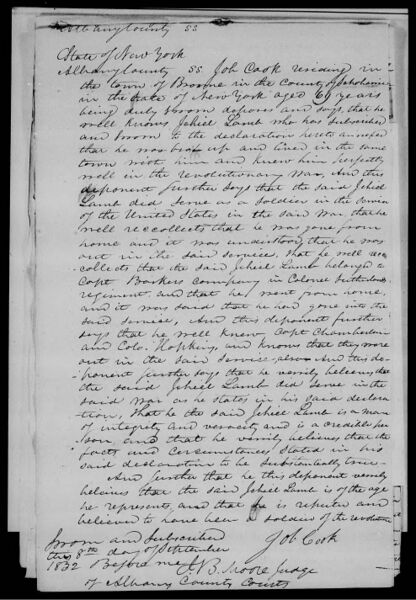 Albany County SS
State of New York
Albany County SS. Job Cook residing in
the town of Broome in the County of Schoharie
in the State of New York aged 69 years
being duly sworn deposes and says, that he
well knows Jehiel Lamb who has subscribed
and sworn to the declaration hereto annexed
that he was bro't up and lived in the same
town with him and knew him perfectly
well in the revolutionary War, And this
deponent further says that the said Jehiel
Lamb did serve as a soldier in the service
of the United States in the said War, that he
well reccollects that he was gone from
home and it was understood that he was
out in the said services, that he well rec
collects that the said Jehiel Lamb belonged to
Capt Barkers company in Colonel
regiment, and that he went from home,
and it was said that he had gone into the
said services, And this deponent further
says that he well knew Capt Chamberlain
and Colo. Hopkins, and knows that they were
out in the said service also And this de-
ponent further says that he verily believes that
the said Jehiel Lamb did serve in the
said War as he states in his said declara
tion, That he the said Jehiel Lamb is a man
of integrity and veracity and is a credible per
son, and that he verily believes that the
facts and circumstances stated in his
said declaration to be substantially true—
And further that he this deponent verily
believes that the said Jehiel Lamb is of the age
he represents, and that he is reputed and
believed to have been a soldier of the revolution
Sworn and Subscribed
this 8th day of September
1832 Before me
Job Cook
B. Moore Judge
of Albany County Courts